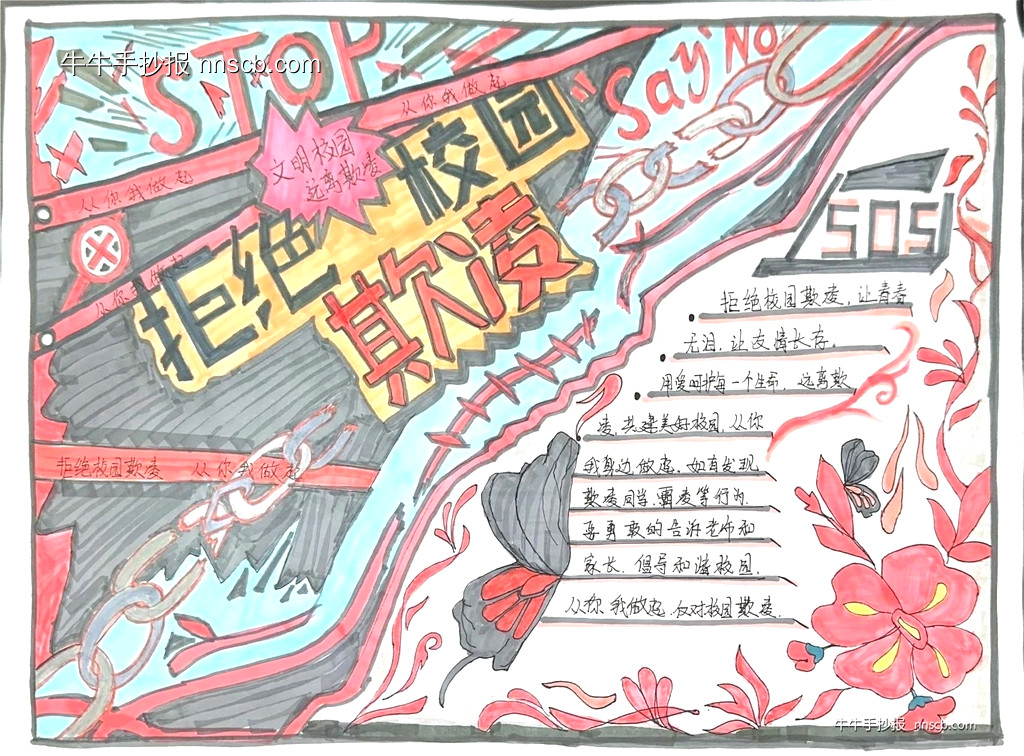 牛牛手抄报 nnscb.com
STOP
"Say No
从你我做起
文明校园
远离欺凌
从你我做起
从你我做起
拒绝校园
欺凌
SOS
拒绝校园欺凌,让青春
无泪.让友情长存.
用爱呵护每一个生命,远离欺
凌,共建美好校园,从你
我身边做起,如有发现
欺凌同学.霸凌等行为.
要勇敢的告诉老师和
家长.倡导和谐校园.
从你我做起.反对校园欺凌.
拒绝校园欺凌 从你我做起
牛牛手抄报 nnscb.com